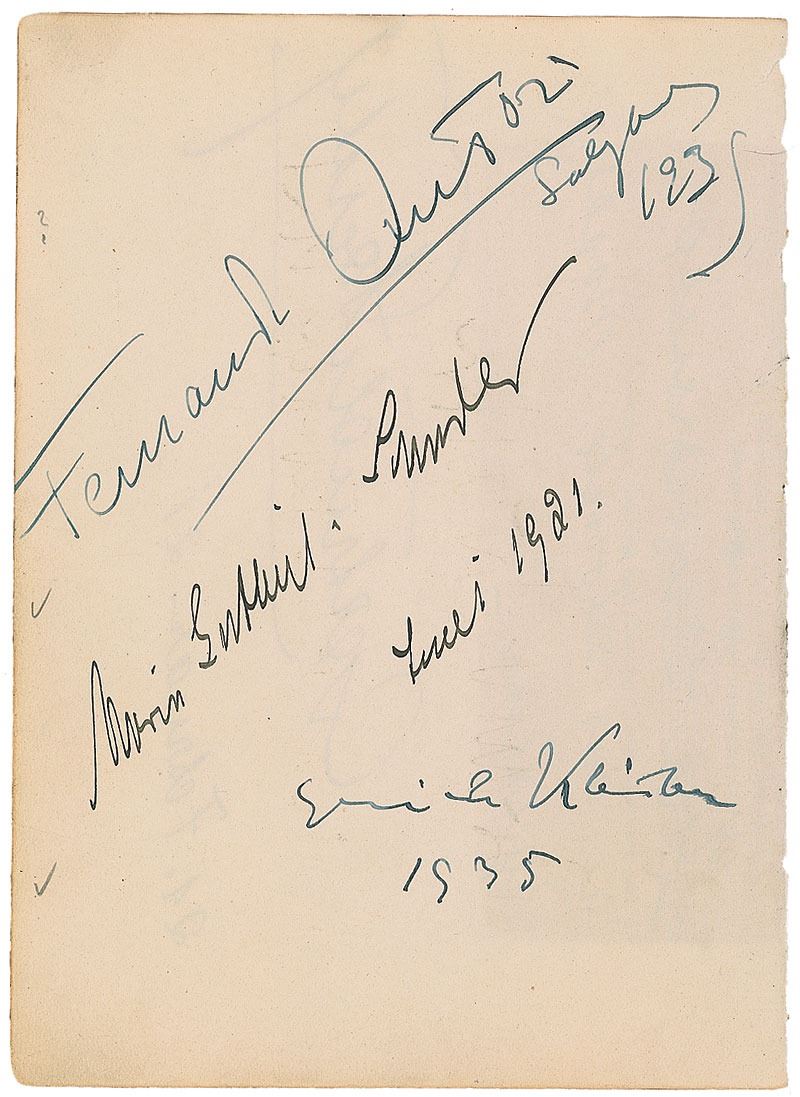 Fernando Autori
Salzburg
1935
Marie Gutheil-Schoder
Juli 1921.
Erich Kleiber
1935